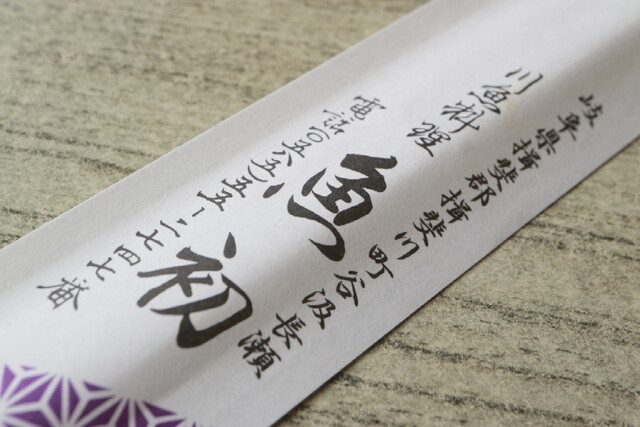 岐阜県揖斐郡揖斐川町谷汲長瀬
川魚料理
魚初
電話〇五八五)五五-二七四七番